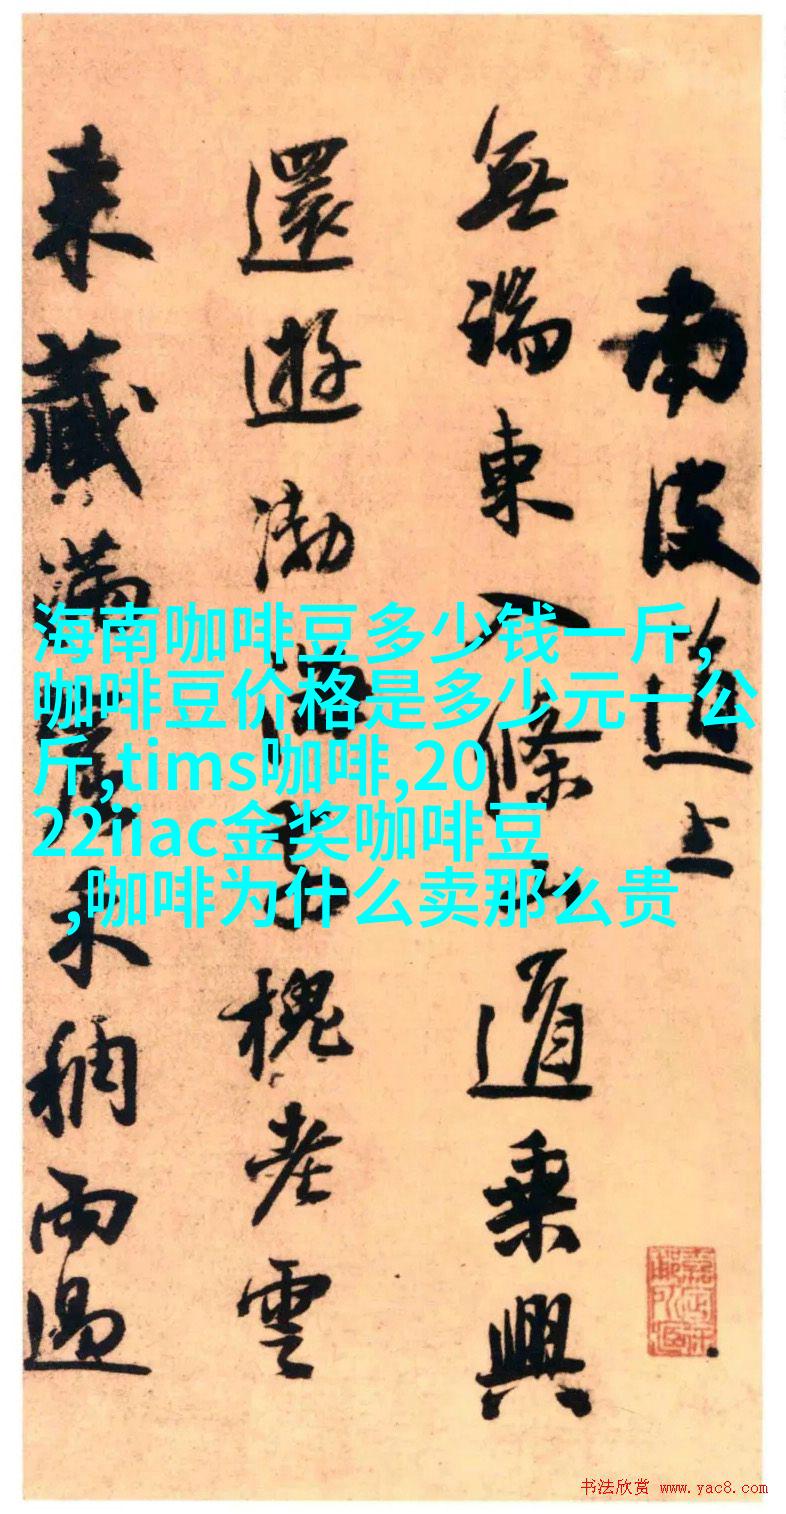 南皮道上
無端東入條山道乘興
還遊渤海
槐老雲
來藏滿
禾稠雨過
海南咖啡豆多少钱一斤,
咖啡豆价格是多少元一公
斤,tims咖啡,20
22iiac金奖咖啡豆
,咖啡为什么卖那么贵
书法欣赏 www.yac8.com